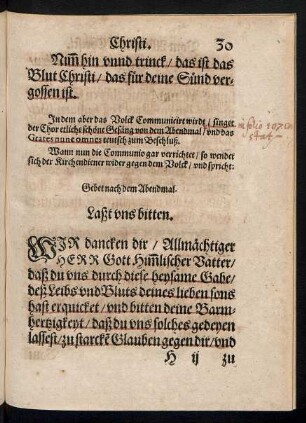 Christi. 30
Nim̃ hin vnnd trinck / das ist das
Blut Christi / das für deine Sünd ver-
gossen ist.
In dem aber das Volck Communicirt wirdt / singet
der Chor etliche schöne Gesäng von dem Abendmal / vnd das
Grates nunc omnes teutsch zum Beschluß.
Wann nun die Communio gar verrichtet / so wendet
sich der Kirchendiener wider gegen dem Volck / vnd spricht:
Gebet nach dem Abendmal.
Laßt vns bitten.
WIR dancken dir / Allmächtiger
HERR Gott Him̃lischer Vatter /
daß du vns durch diese heysame Gabe /
deß Leibs vnd Bluts deines lieben sons
hast erquicket / vnd bitten deine Barm-
hertzigkeyt / daß du vns solches gedeyen
lassest / zu starckẽ Glauben gegen dir / vnd
H ij zu